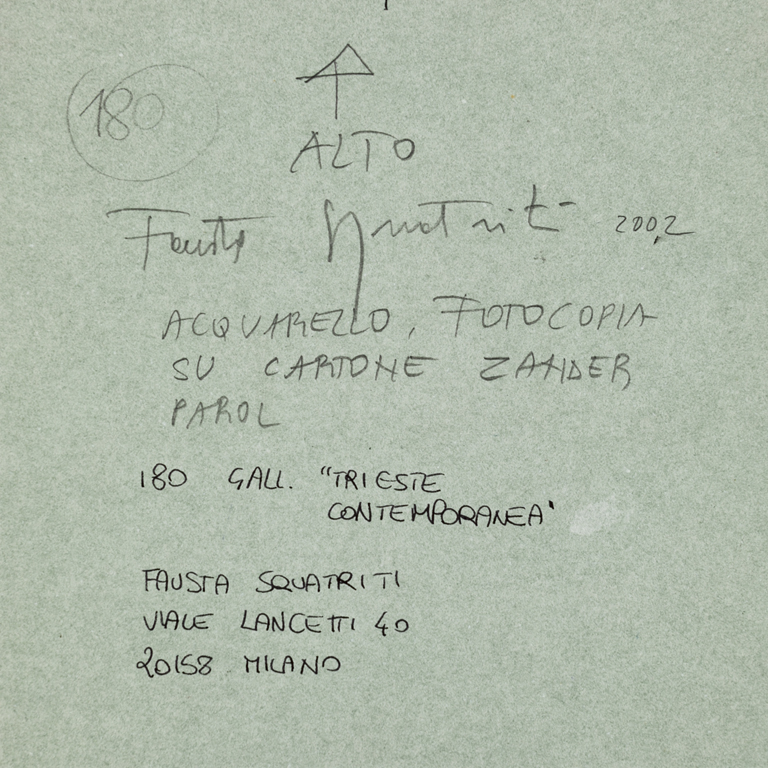 180
ALTO
Fausta Squatriti 2002
ACQUARELLO, FOTOCOPIA
SU CARTONE ZANDER
PAROL
180 GALL. "TRIESTE
CONTEMPORANEA"
FAUSTA SQUATRITI
VIALE LANCETTI 40
20158 MILANO